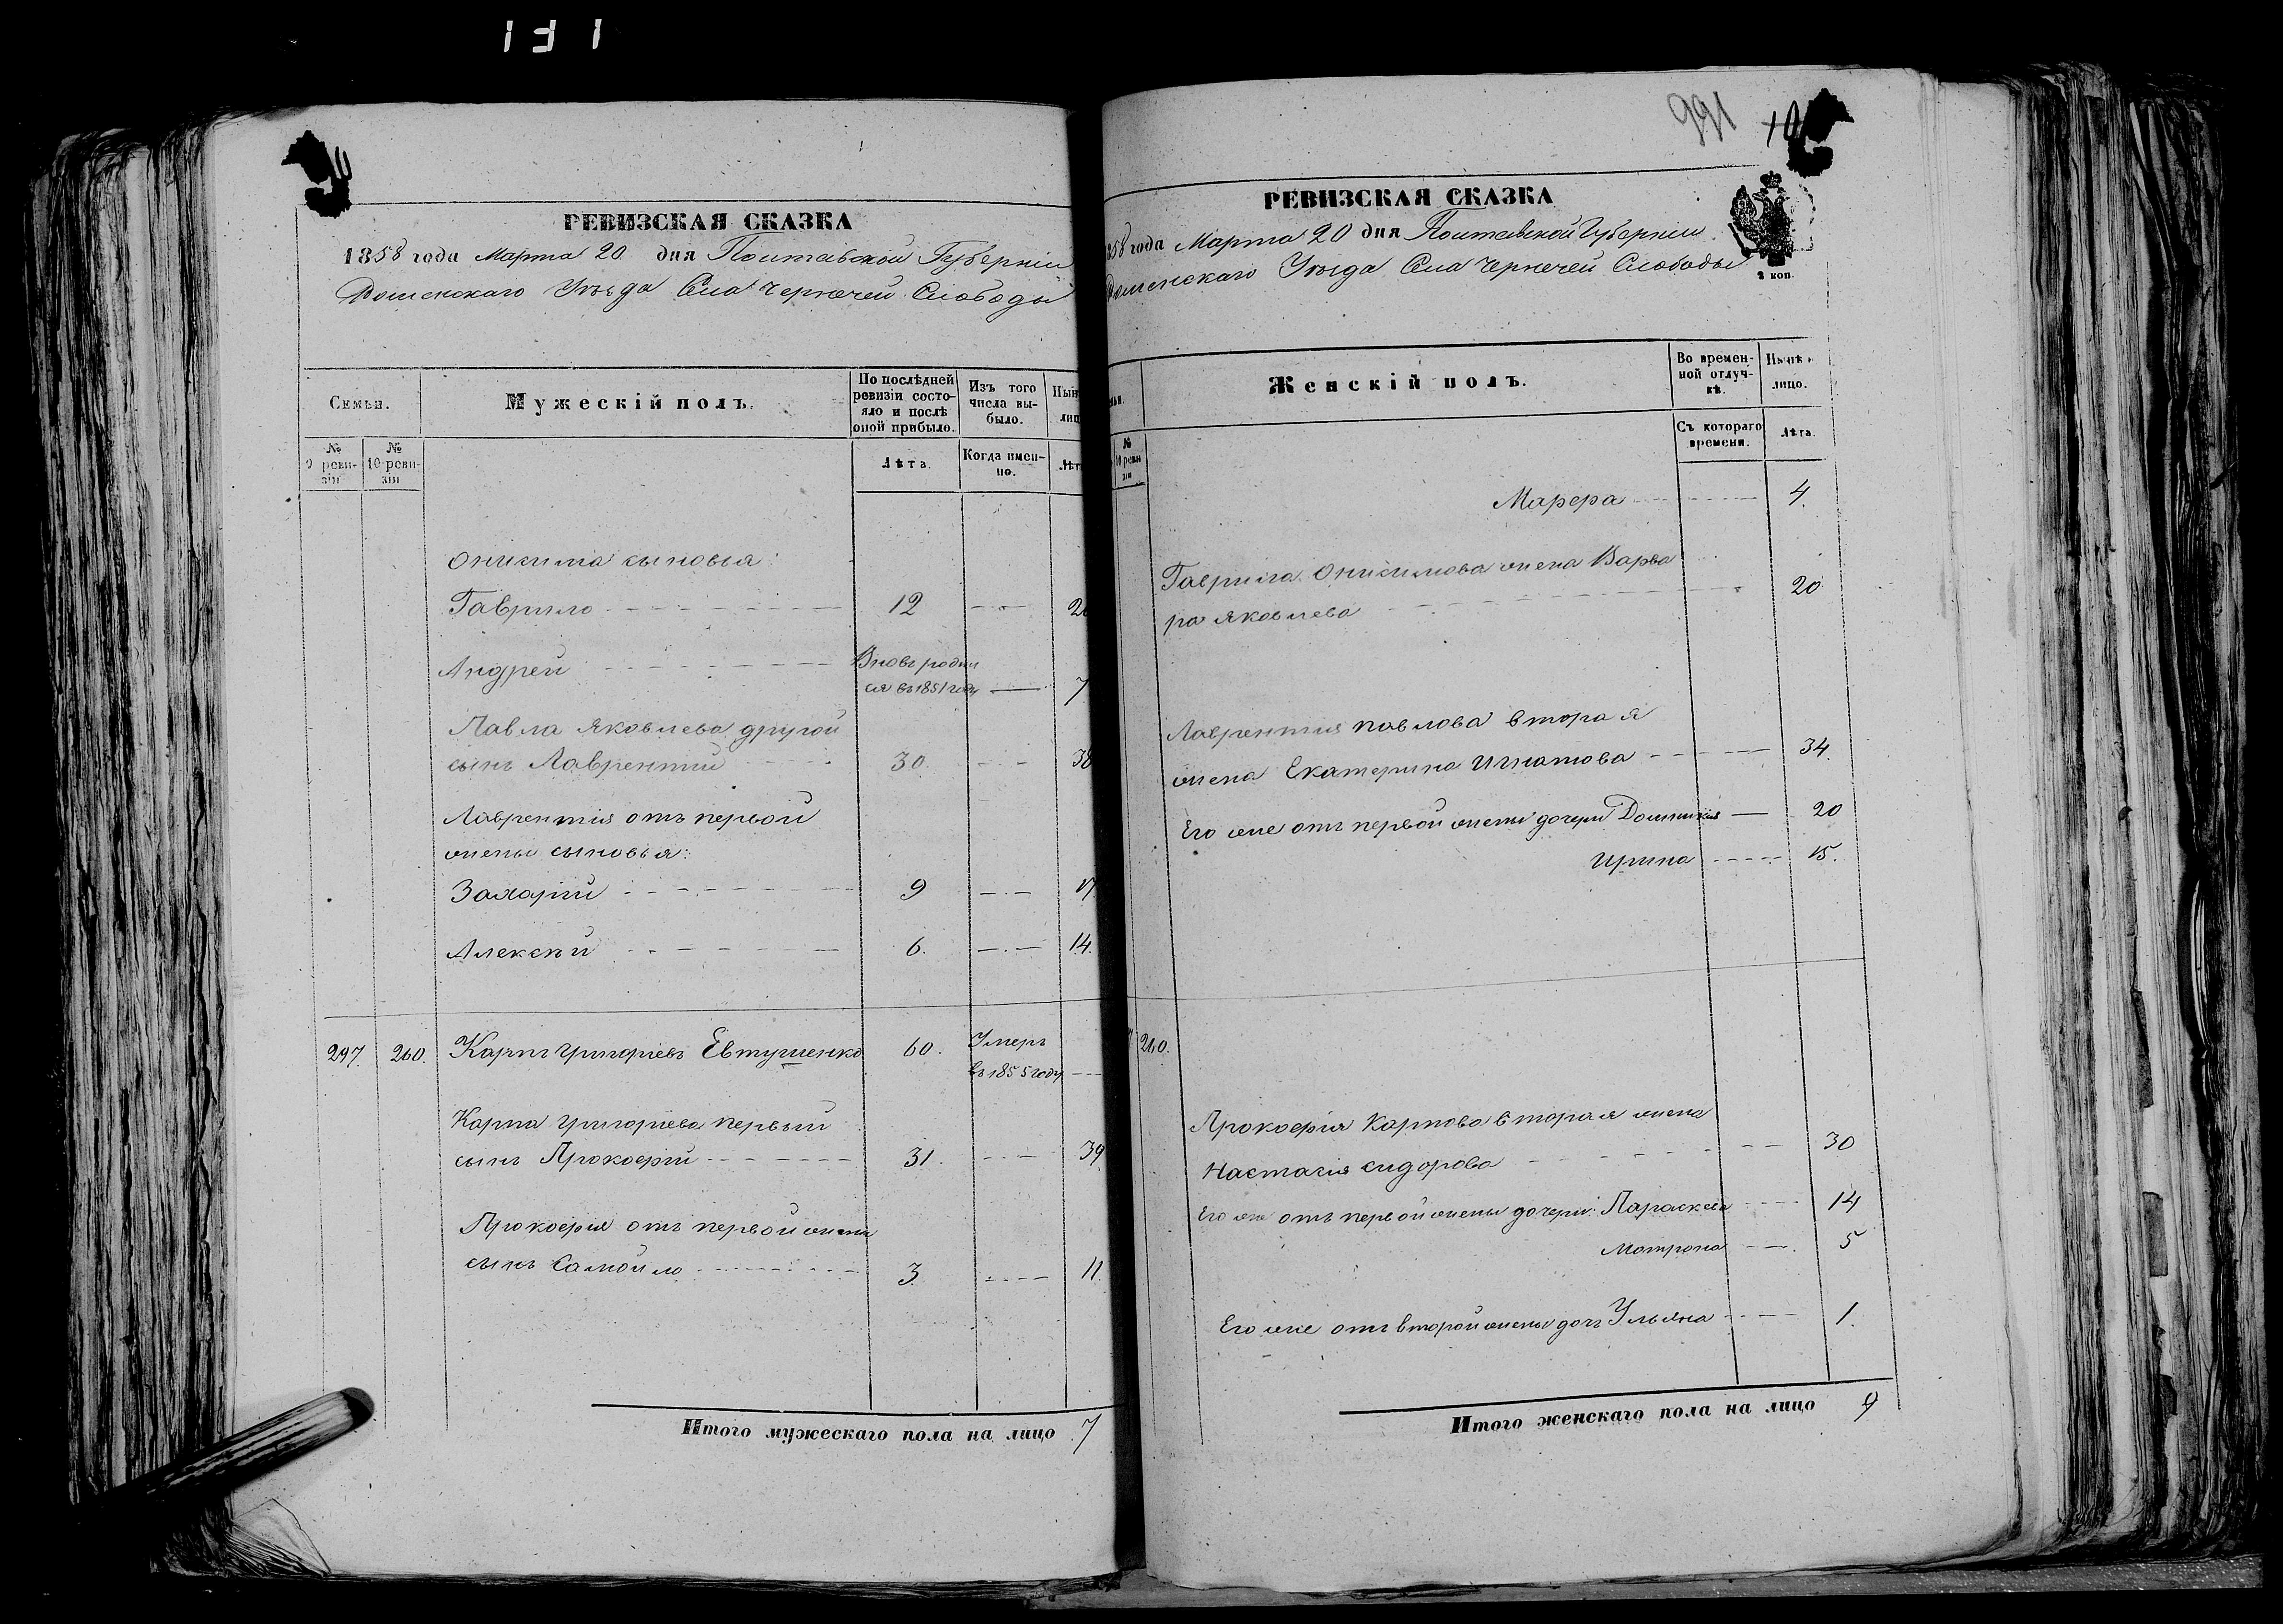 131
РЕВИЗСКАЯ СКАЗКА
1858 года Марта 20 дня Полтавской Губерніи
Роменскаго Уѣзда Села Чернечей Слободы
Семьи.
Мужескій полъ.
По послѣдней ревизіи состояло и послѣ оной прибыло.
Изъ того числа выбыло.
Нын
лиц
№ 9 ревизіи
№ 10 ревизіи
Лѣта.
Когда именно.
Лѣт
Оникима сыновья:
Гаврило 12 20
Андрей Вновь родил
ся въ 1851 году 7
Павла Яковлева другой
сынъ Лаврентій 30. 38
Лаврентія отъ первой
жены сыновья:
Захарій 9 17.
Алексѣй 6. 14.
297. 260. Карпъ Григорьевъ Евтушенко 60. Умеръ
въ 1855 году
Карпа Григорьева первый
сынъ Прокофій 31. 39.
Прокофія отъ первой жены
сынъ Самойло 3. 11.
Итого мужескаго пола на лицо 7
991 10
РЕВИЗСКАЯ СКАЗКА
858 года Марта 20 дня Полтавской Губерніи
Роменскаго Уѣзда Села Чернечей Слободы
2 коп.
Женскій полъ.
Во временной отлучкѣ.
Нынѣ н
лицо.
№ 10 реви зіи
Съ котораго времени.
Лѣта.
Марфа 4.
Гаврила Оникимова жена Варва
ра Яковлева 20
Лаврентія Павлова вторая
жена Екатерина Игнатова 34.
Его же отъ первой жены дочери Домникія 20
Ирина 15.
260.
Прокофія Карпова вторая жена
Настасія Сидорова 30
Его же отъ первой жены дочери: Параскева 14
Мотрона 5
Его же отъ второй жены дочь Ульяна 1.
Итого женскаго пола на лицо 9